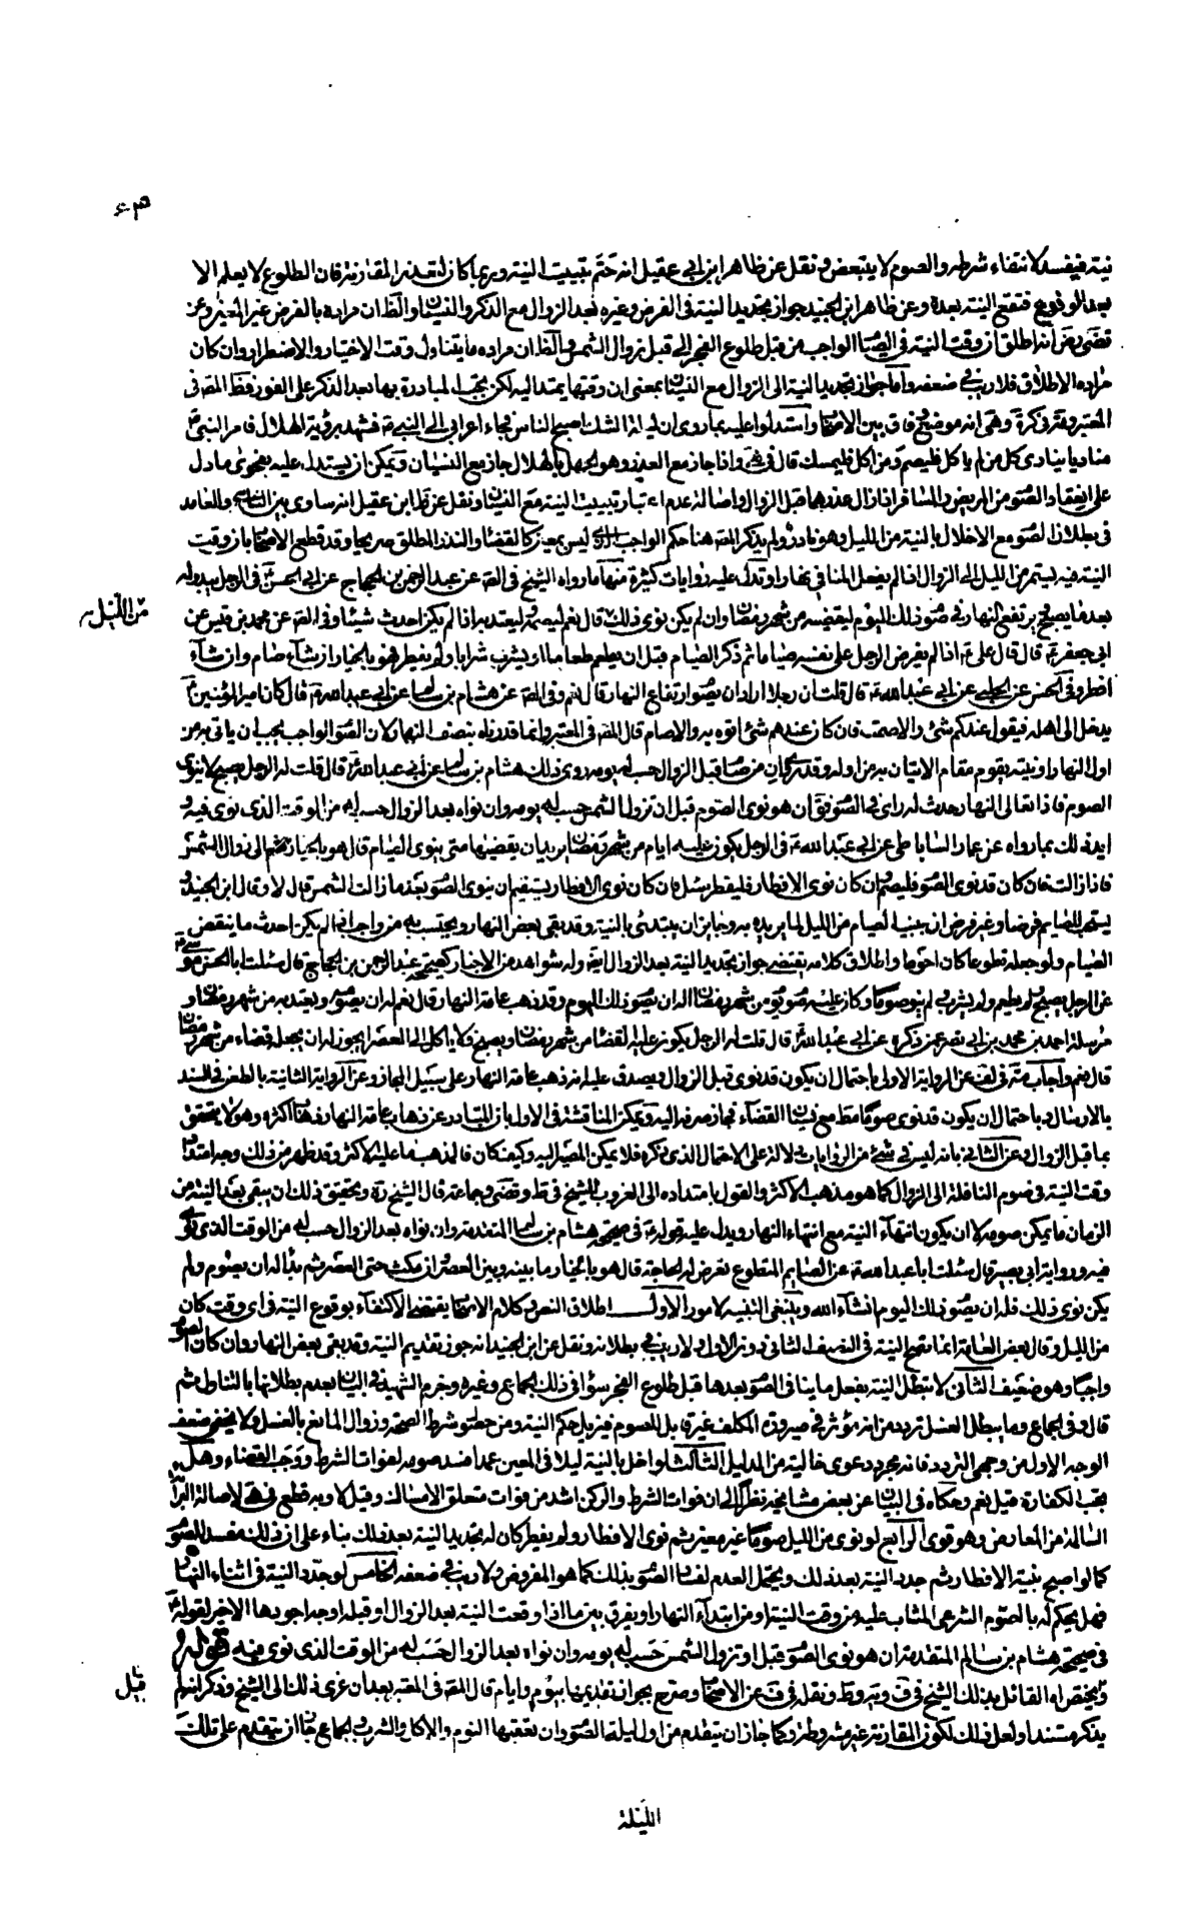 نية فيفسد لانتفاء شرطه والصوم لا يتبعض ونقل عن ظاهر ابن ابي عقيل انه حتم تبييت النية وربما كان لتعذر المقارنة فان الطلوع لا يعلم الا
بعد الوقوع فتقع النية بعده وعن ظاهر ابن الجنيد جواز تجديد النية في الفرض وغيره بعد الزوال مع الذكر والنسيان والظ ان مراده بالفرض غير المعين وعن
انه اطلق ان وقت النية في الصيام الواجب من قبل طلوع الفجر الى قبل زوال الشمس والظ ان مراده ما يتناول وقت الاختيار والاضطرار وان كان
مراده الاطلاق فلا ريب في ضعفه واما جواز تجديد النية الى الزوال مع النسيان بمعنى ان وقتها يمتد اليه لكن يجب المبادرة بها بعد الذكر على الفور فظ المصه في
المعتبر انه موضع وفاق بين الاصحاب واستدلوا عليه بما روى ان ليلة الشك اصبح الناس فجاء اعرابي الى النبي فشهد برؤية الهلال فامر النبي ص
مناديا ينادى كل من لم ياكل فليصم ومن اكل فليمسك قال في واذا جاز مع العذر وهو الجهل بالهلال جاز مع النسيان ويمكن ان يستدل عليه بفحوى ما دل
على انعقاد الصوم من المريض والمسافر اذا زال عذرهما قبل الزوال واصالة عدم اعتبار تبييت النية مع النسيان ونقل عن ظ ابن عقيل انه ساوى بين الناسي والعامد
في بطلان الصوم مع الاخلال بالنية من الليل وهو نادر ولم يذكر المصه هنا حكم الواجب الذي ليس بمعين كالقضاء والنذر المطلق صريحا وقد قطع الاصحاب بان وقت
النية فيه يستمر من الليل الى الزوال اذا لم يفعل المنافي نهارا وتدل عليه روايات كثيرة منها ما رواه الشيخ في الصه عن عبد الرحمن بن الحجاج عن ابي الحسن ع في الرجل يبدو له
بعد ما يصبح ويرتفع النهار في صوم ذلك اليوم ليقضيه من شهر رمضان وان لم يكن نوى ذلك قال نعم ليصمه وليعتد به اذا لم يكن احدث شيئا وفي الصه عن محمد بن قيس عن
من الليل
ابي جعفر ع قال قال علي ع اذا لم يفرض الرجل على نفسه صياما ثم ذكر الصيام قبل ان يطعم طعاما او يشرب شرابا ولم يفطر فهو بالخيار ان شاء صام وان شاء
افطر وفي الحسن عن الحلبي عن ابي عبد الله ع قال قلت ان رجلا اراد ان يصوم ارتفاع النهار قال نعم وفي الصه عن هشام بن سالم عن ابي عبد الله ع قال كان امير المؤمنين ع
يدخل الى اهله فيقول عندكم شئ والا صمت فان كان عندهم شئ اتوه به والا صام قال المصه في المعتبر وانما قدرناه بنصف النهار لان الصوم الواجب يجب ان ياتي به من
اول النهار او بنيته يقوم مقام الاتيان به من اوله من صام قبل الزوال حسب له يومه روى ذلك هشام بن سالم عن ابي عبد الله ع قال قلت له الرجل يصبح لا ينوي
الصوم فاذا تعالى النهار حدث له راى في الصوم فقال ان هو نوى الصوم قبل ان تزول الشمس حسب له يومه وان نواه بعد الزوال حسب له من الوقت الذى نوى فيه
ايد ذلك بما رواه عن عمار الساباطي عن ابي عبد الله ع في الرجل يكون عليه ايام من شهر رمضان يريد ان يقضيها متى ينوى الصيام قال هو بالخيار الى زوال الشمس
فاذا زالت فان كان قد نوى الصوم فليصم وان كان نوى الافطار فليفطر سئل فان كان نوى الافطار يستقيم ان ينوى الصوم بعد ما زالت الشمس قال لا وقال ابن الجنيد
يستحب للصايم فرضا وغير فرض ان يبيت الصيام من الليل لما يريده به وجايز ان يبتدئ بالنية وقد بقى بعض النهار ويحتسب به من واجب اذا لم يكن احدث ما ينقض
الصيام ولو جعله تطوعا كان احوط واطلاق كلامه يقتضي جواز تجديد النية بعد الزوال ايضا وله شواهد من الاخبار كصحيحة عبد الرحمن بن الحجاج قال سئلت ابا الحسن موسى ع
عن الرجل يصبح ولم يطعم ولم يشرب ولم ينو صوما وكان عليه يوم من شهر رمضان اله ان يصوم ذلك اليوم وقد ذهب عامة النهار قال نعم له ان يصومه ويعتد به من شهر رمضان و
مرسلة احمد بن محمد بن ابي نصر عمن ذكره عن ابي عبد الله ع قال قلت له الرجل يكون عليه القضاء من شهر رمضان ويصبح فلا ياكل الى العصر ايجوز له ان يجعله قضاء من شهر رمضان
قال نعم واجاب عنه في لف عن الرواية الاولى باحتمال ان يكون قد نوى قبل الزوال ويصدق عليه انه ذهب عامة النهار على سبيل المجاز وعن الرواية الثانية بالطعن في السند
بالارسال وباحتمال ان يكون قد نوى صوما مطلقا مع نسيان القضاء فجاز صرفه اليه ويمكن المناقشة في الاول بان المتبادر من ذهاب عامة النهار ذهاب اكثره وهو لا يتحقق
بما قبل الزوال وعن الثاني بانه ليس في شئ من الروايات دلالة على الاحتمال الذى ذكره فلا يمكن المصير اليه وكيف كان فالمذهب ما عليه الاكثر وقد ظهر من ذلك وجه امتداد
وقت النية في صوم النافلة الى الزوال كما هو مذهب الاكثر والقول بامتداده الى الغروب للشيخ في ط وجماعة قال الشيخ ره وتحقيق ذلك ان يبقى بعد النية من
الزمان ما يمكن صومه لا ان يكون انتهاء النية مع انتهاء النهار ويدل عليه قوله ع في صحيحة هشام بن سالم المتقدمة وان نواه بعد الزوال حسب له من الوقت الذى نوى
فيه ورواية ابي بصير قال سئلت ابا عبد الله ع عن الصايم المتطوع تعرض له الحاجة قال هو بالخيار ما بينه وبين العصر وان مكث حتى العصر ثم بدا له ان يصوم ولم
يكن نوى ذلك فله ان يصوم ذلك اليوم انشاء الله وينبغي التنبيه لامور الاول اطلاق النص وكلام الاصحاب يقتضي الاكتفاء بوقوع النية في اى وقت كان
من الليل وقال بعض العامة انما تصح النية في النصف الثاني دون الاول ولا ريب في بطلانه ونقل عن ابن الجنيد انه جوز تقديم النية وقد بقى بعض النهار وان كان الصوم
واجبا وهو ضعيف الثاني لا تبطل النية بفعل ما ينافي الصوم بعدها قبل طلوع الفجر سواء في ذلك الجماع وغيره وجزم الشهيد في البيان بعدم بطلانها بالتناول ثم
قال وفي الجماع وما يبطل الغسل تردد من انه مؤثر في صيرورة المكلف غير قابل للصوم فيزيل حكم النية ومن حصول شرط الصحة وزوال المانع بالغسل ولا يخفى ضعف
الوجه الاول من وجهى التردد فانه مجرد دعوى خالية من الدليل الثالث لو اخل بالنية ليلا في المعين عمدا فسد صومه لفوات الشرط ووجب القضاء وهل
يجب الكفارة قيل نعم وحكاه في البيان عن بعض مشايخه نظرا الى ان فوات الشرط او الركن اشد من فوات متعلق الامساك وقيل لا وبه قطع في لاصالة البراءة
السالمة من المعارض وهو قوى الرابع لو نوى من الليل صوما غير معين ثم نوى الافطار ولم يفطر كان له تجديد النية بعد ذلك بناء على ان ذلك مفسد للصوم
كما لو اصبح بنية الافطار ثم جدد النية بعد ذلك ويحتمل العدم لفساد الصوم بذلك كما هو المفروض ولا ريب في ضعفه الخامس لو جدد النية في اثناء النهار
فهل يحكم له بالصوم الشرعى المثاب عليه من وقت النية او من ابتداء النهار او يفرق بين ما اذا وقعت النية بعد الزوال او قبله اوجه اجودها الاخير لقوله ع
في صحيحة هشام بن سالم المتقدمة ان هو نوى الصوم قبل ان تزول الشمس حسب له يومه وان نواه بعد الزوال حسب له من الوقت الذى نوى فيه قوله
القائل بذلك الشيخ في ونقله في عن الاصحاب وصرح بجواز تقديمها بيوم وايام قال المصه في المعتبر بعد ان عزى ذلك الى الشيخ وذكر انه لم
قيل
يذكر مستندا ولعل ذلك لكون المقارنة غير مشروطة وكما جاز ان يتقدم من اول ليلة الصوم وان تعقبها النوم والاكل والشرب والجماع جاز ان يتقدم على تلك
الليلة